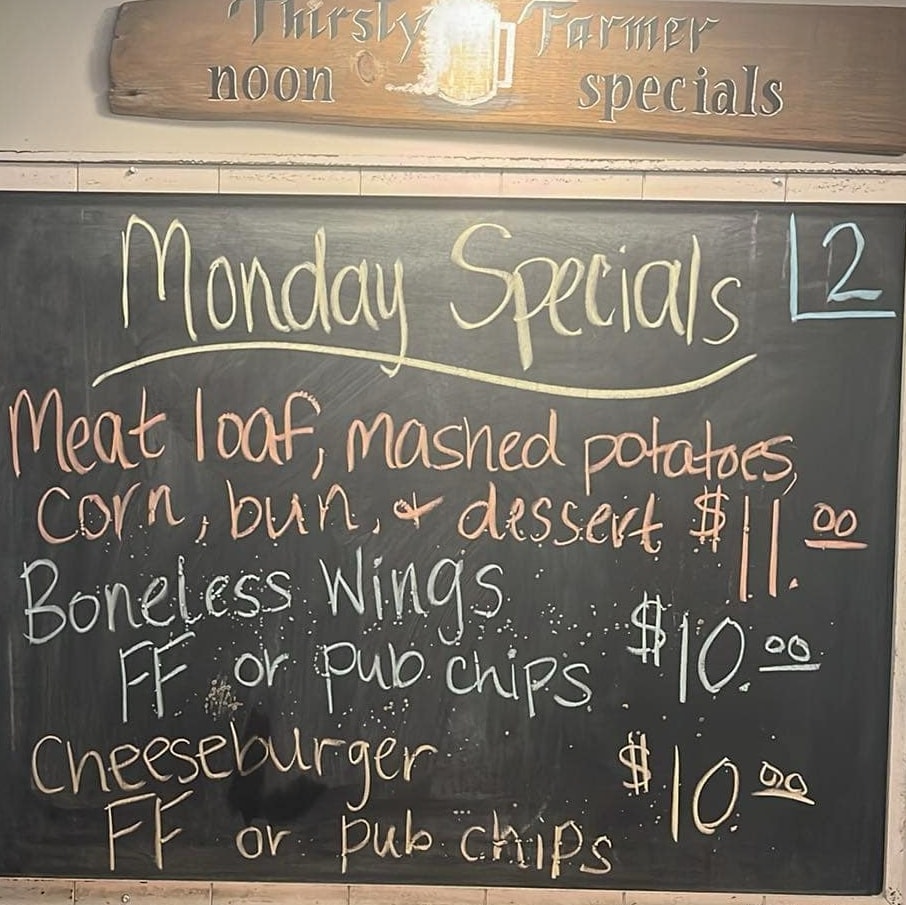 Thirsty Farmer
noon specials
Monday Specials 2
Meat loaf, mashed potatoes,
corn, bun, & dessert $11.00
Boneless Wings
FF or pub chips $10.00
Cheeseburger $10.00
FF or pub chips